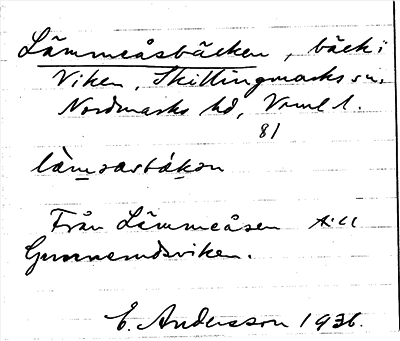 Lämmeåsbäcken, bäck i
Viken, Skillingmarks sn,
Nordmarks hd, Vrml l.
81
lä̀mɔasbä́kɔn
Från Lämmeåsen till
Gunnerudsviken.
E. Andersson 1936.